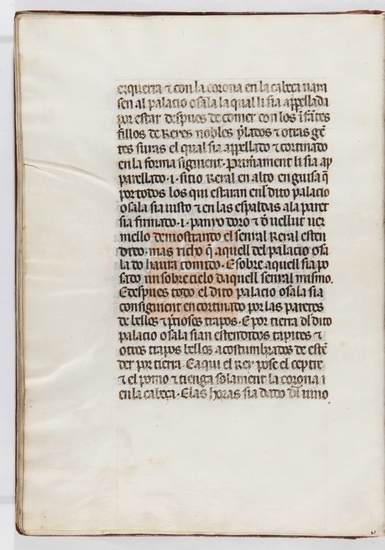 ezquerra ⁊ con la corona en la cabeça uan
sen al palacio o sala la qual li sia appellada
por estar despues de comer con los ifātes
fillos de Reyes nobles p̄lados ⁊ otras gē
tes suyas el qual sia appellado ⁊ cortinado
en la forma siguient. Primament li sia ap
parellado .i. sitio Reyal en alto en guisa q̄
por todos los qui estaran en el dito palacio
o sala sia uisto ⁊ en las espaldas a la paret
sia firmado .i. panyo doro ⁊ o uellut uer
mello demostrando el senyal Reyal esten
dido mas richo q̄ aquell del palacio o sa
la do haura comido. E sobre aquell sia po
sado un sobre cielo daquell senyal mismo.
E despues todo el dito palacio o sala sia
consiguient encortinado por las paretes
de bellos ⁊ p̄ciosos trapos. E por tierra dl dito
palacio o sala sian estendidos tapites ⁊
otros trapos bellos acostumbrados de estē
der por tierra. E aqui el Rey pose el ceptre
⁊ el pomo ⁊ tienga solament la corona
en la cabeça. E las horas sia dado dl uino